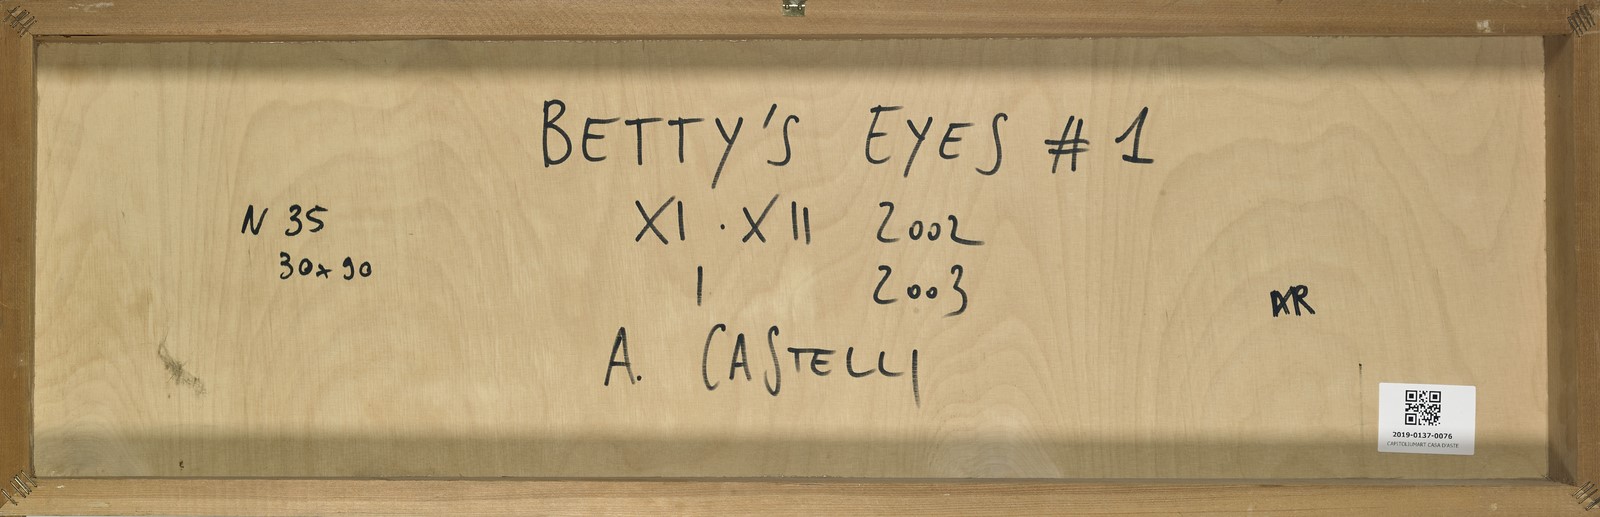 BETTY'S EYES # 1
XI · XII 2002
I 2003
A. CASTELLI
N 35
30x90
2019-0137-0076
CAPITOLIUMART CASA D'ASTE